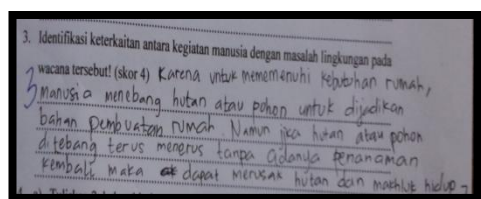 3. Identifikasi keterkaitan antara kegiatan manusia dengan masalah lingkungan pada
wacana tersebut! (skor 4) Karena untuk mememenuhi kebutuhan rumah,
3 manusia menebang hutan atau pohon untuk dijadikan
bahan pembuatan rumah. Namun jika hutan atau pohon
ditebang terus menerus tanpa adanya penanaman
kembali maka dapat merusak hutan dan makhluk hidup